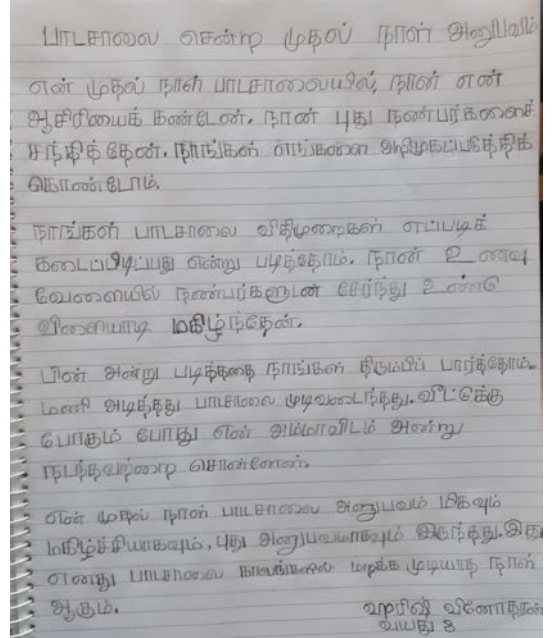 பாடசாலை சென்ற முதல் நாள் அனுபவம்
என் முதல் நாள் பாடசாலையில், நான் என்
ஆசிரியைக் கண்டேன். நான் புது நண்பர்களைச்
சந்தித்தேன். நாங்கள் எங்களை அறிமுகப்படுத்திக்
கொண்டோம்.
நாங்கள் பாடசாலை விதிமுறைகள் எப்படிக்
கடைப்பிடிப்பது என்று படித்தோம். நான் உணவு
வேளையில் நண்பர்களுடன் சேர்ந்து உண்டு
விளையாடி மகிழ்ந்தேன்.
பின் அன்று படித்ததை நாங்கள் திரும்பிப் பார்த்தோம்.
மணி அடித்தது பாடசாலை முடிவடைந்தது. வீட்டுக்கு
போகும் போது என் அம்மாவிடம் அன்று
நடந்தவற்றை சொன்னேன்.
என் முதல் நாள் பாடசாலை அனுபவம் மிகவும்
மகிழ்ச்சியாகவும், புது அனுபவமாகவும் இருந்தது. இது
எனது பாடசாலை காலங்களில் மறக்க முடியாத நாள்
ஆகும்.
ஹரிஷ் வினோதரன்
வயது 8